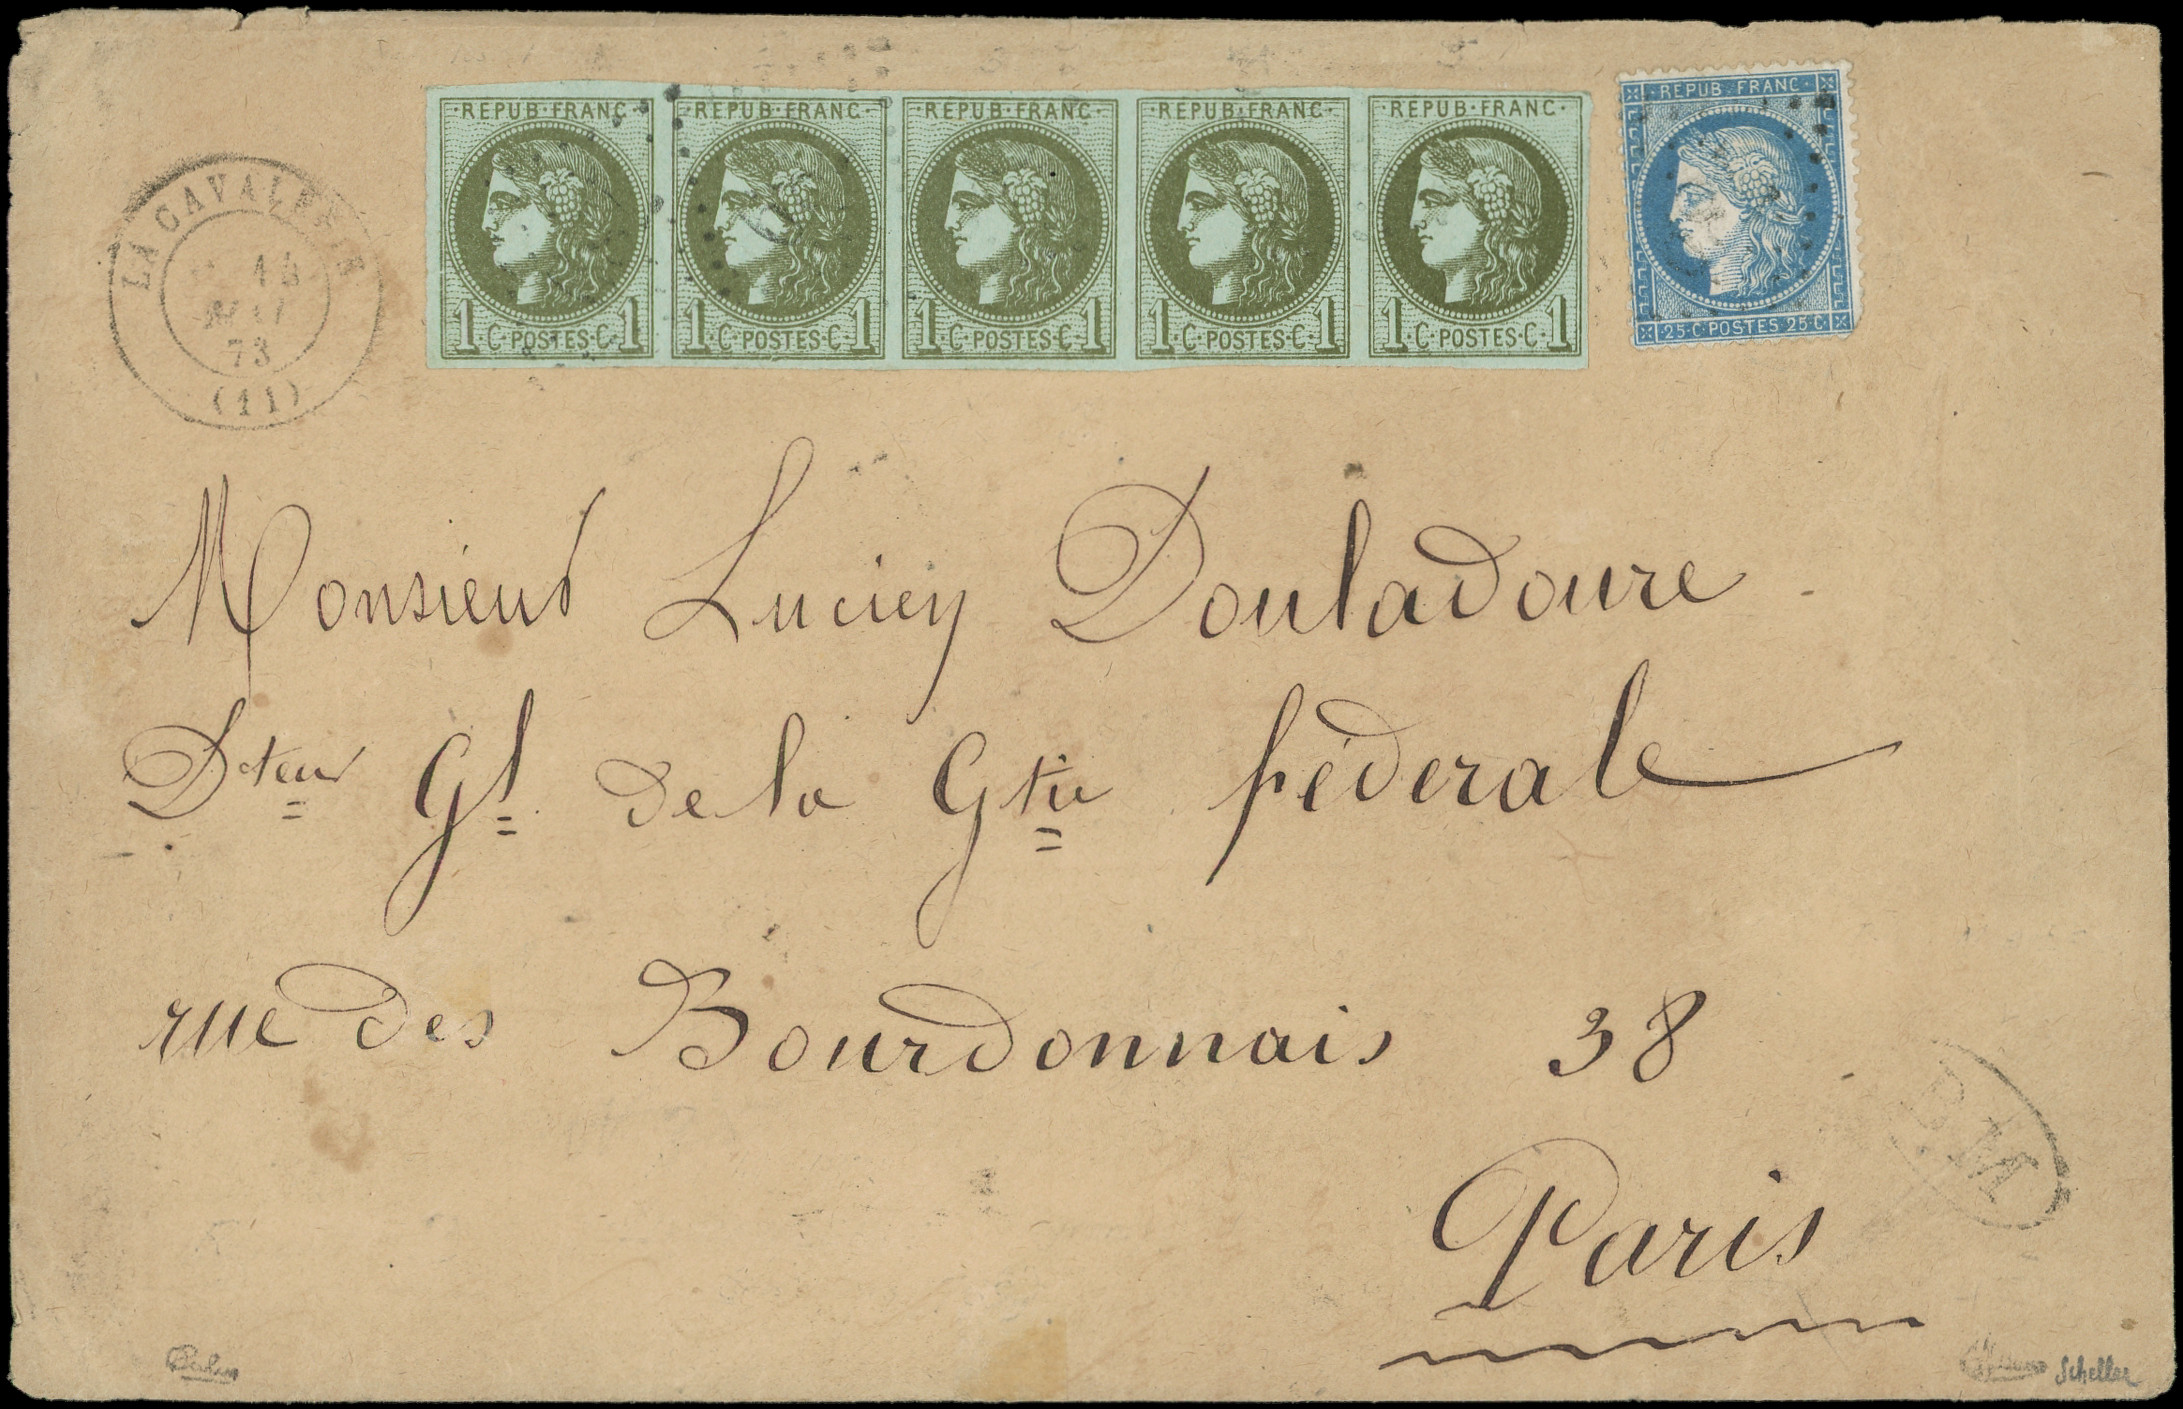 REPUB·FRANC· REPUB·FRANC· REPUB·FRANC· REPUB·FRANC· REPUB·FRANC·
1 C·POSTES·C·1 1 C·POSTES·C·1 1 C·POSTES·C·1 1 C·POSTES·C·1 1 C·POSTES·C·1
· REPUB · FRANC ·
25·C·POSTES 25·C·
LA CAVALERIE
MAI
73
(11)
Monsieur Lucien Douladoure
Dteur Gl de la Gtie fédérale
rue des Bourdonnais 38
Paris
BM
Scheller